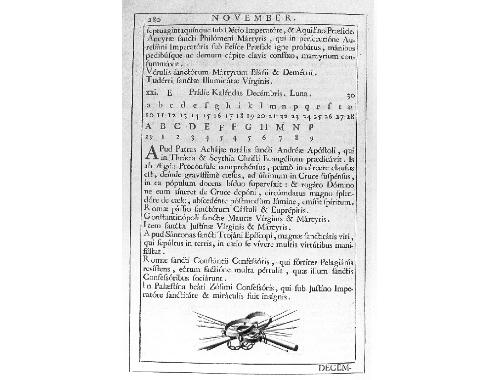 280 NOVEMBER.
septuaginta quinque sub Decio Imperatóre, & Aquilíno Præside.
Ancyræ sancti Philómeni Mártyris, qui in persecutióne Au-
reliáni Imperatóris sub Felíce Præside igne probátus, mánibus
pedibúsque ac demum cápite clavis confixo, martyrium con-
summávit.
Vérulis sanctórum Mártyrum Blásii & Demétrii.
Tudérti sanctæ Illuminátæ Vírginis.
xxi. E Prídie Kaléndas Decémbris. Luna. 30
a b c d e f g h i k l m n p q r s t u
10 11 12 13 14 15 16 17 18 19 20 21 22 23 24 25 26 27 28
A B C D E F F G H M N P
29 1 2 3 4 5 6 7 8 9
APud Patras Achájæ natális sancti Andréæ Apóstoli, qui
in Thrácia & Scythia Christi Evangélium prædicávit. Is
ab Ægéa Procónsule comprehénsus, primò in cárcere clausus
est, deinde gravíssimè cæsus, ad últimum in Cruce suspénsus,
in ea pópulum docens bíduo supervíxit: & rogáto Dómino
ne eum síneret de Cruce depóni, circúmdatus magno splen-
dóre de cælo, abscedénte póstmodum lúmine, emísit spíritum.
Romæ pássio sanctórum Cástuli & Euprépitis.
Constantinópoli sanctæ Mauræ Vírginis & Mártyris.
Item sanctæ Justínæ Vírginis & Mártyris.
Apud Sántonas sancti Trojáni Epíscopi, magnæ sanctitátis viri,
qui sepúltus in terris, in cælo se vívere multis virtútibus mani-
féstat.
Romæ sancti Constántii Confessóris, qui fórtiter Pelagiánis
resístens, eórum factióne multa pértulit, quæ illum sanctis
Confessóribus sociárunt.
In Palæstína beáti Zósimi Confessóris, qui sub Justíno Impe-
ratóre sanctitáte & miráculis fuit insígnis.
DECEM-